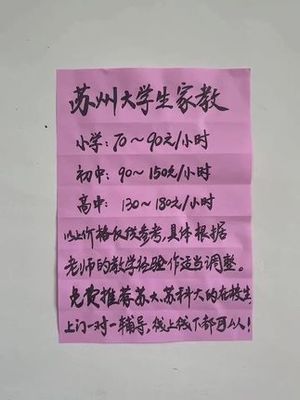 苏州大学生家教
小学：70～90元/小时
初中：90～150元/小时
高中：130～180元/小时
以上价格仅供参考，具体根据
老师的教学经验作适当调整。
免费推荐苏大、苏科大的在校生
上门一对一辅导，线上线下都可以！